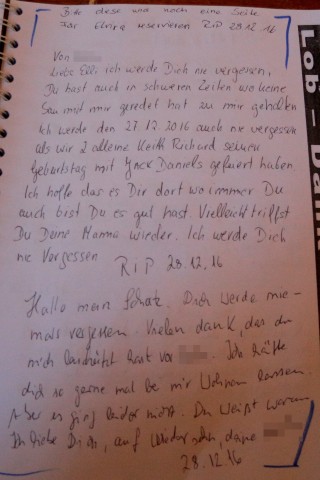 Bitte diese und noch eine Seite
für Elvira reservieren RIP 28.12.16
Von
Liebe Elli ich werde Dich nie vergessen,
Du hast auch in schweren Zeiten wo keine
Sau mit mir geredet hat zu mir gehalten
Ich werde den 27.12.2016 auch nie vergessen
als wir 2 alleine Keith Richard seinen
Geburtstag mit Jack Daniels gefeiert haben.
Ich hoffe das es Dir dort wo immer Du
auch bist Du es gut hast. Vielleicht triffst
Du Deine Mamma wieder. Ich werde Dich
nie Vergessen
RIP 28.12.16
Hallo mein Schatz. Dich werde nie-
mals vergessen. Vielen dank, das du
mich beschützt hast vor. Ich hätte
dich so gerne mal bei mir Wohnen lassen.
Aber es ging leider nicht. Du weißt warum
Ich liebe Dich, auf wiedersehn, deine
28.12.16
Lob - Dank